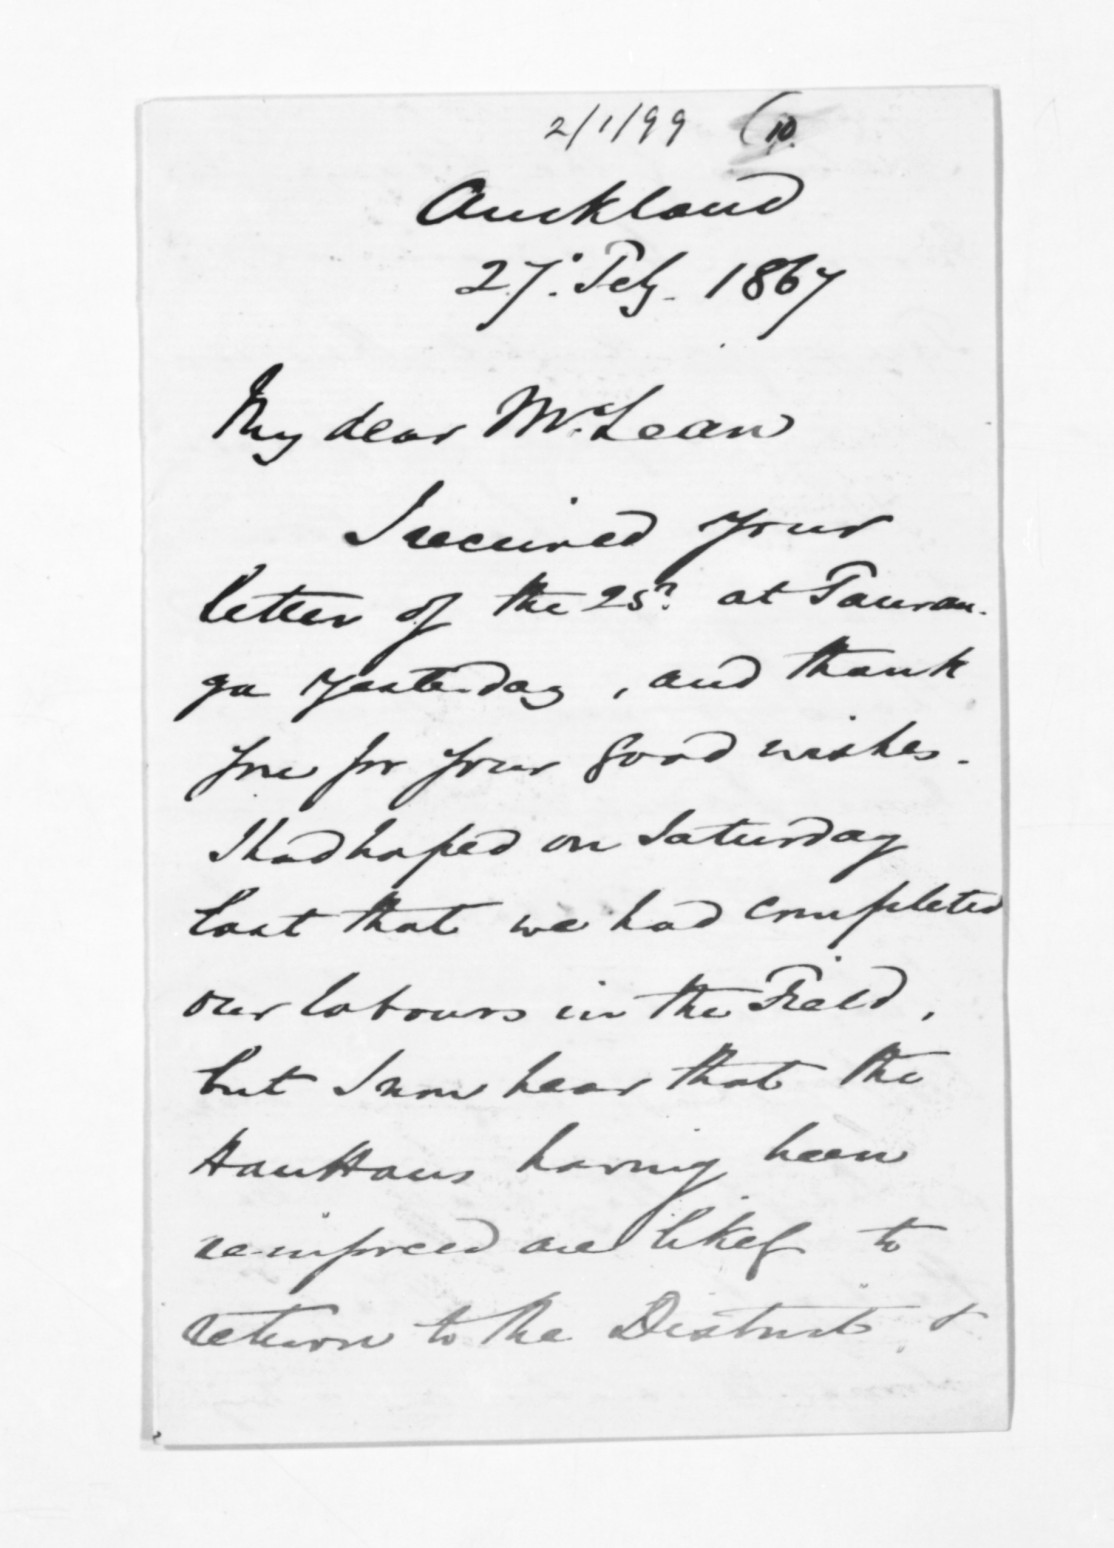 2/1/99 (10.
Auckland
27th Feby. 1867
My dear McLean
I received your
letter of the 25th at Tauran-
ga yesterday, and thank
you for your good wishes.
I had hoped on Saturday
last that we had completed
our labours in the Field,
but I now hear that the
HauHaus having been
re-inforced are likely to
return to the District &